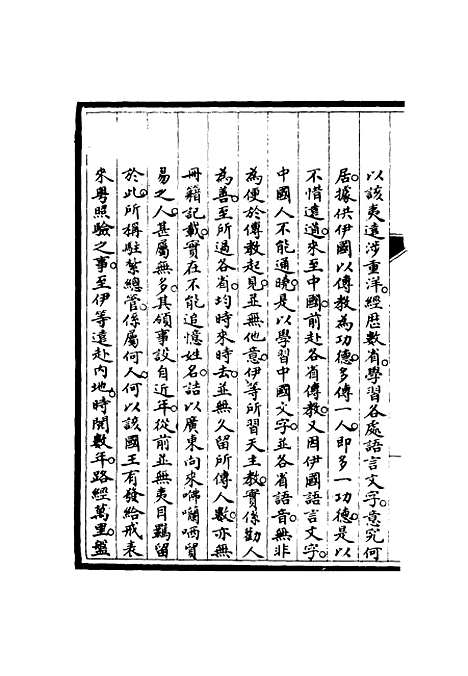 以該夷遠涉重洋。經歷數省。學習各處語言文字。意究何
居。據供伊國以傳教為功德。多傳一人。即多一功德。是以
不惜遠適。來至中國。前赴各省傳教。又因伊國語言文字。
中國人不能通曉。是以學習中國文字。並各省語音。無非
為便於傳教起見。並無他意。伊等所習天主教。實係勸人
為善。至所過各省。均時來時去。並無久留。所傳人數。亦無
冊籍記載。實在不能追憶姓名。詰以廣東向來咈囒哂貿
易之人。甚屬無多。其領事設自近年。從前並無夷目羈留
於此。所稱駐紮總管。係屬何人。何以該國王有發給戒表
來粵照驗之事。至伊等遠赴內地。時閱數年。路經萬里。盤